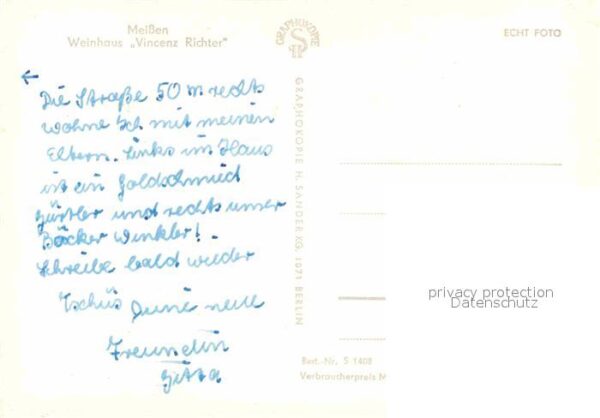 Meißen
Weinhaus „Vincenz Richter"
GRAPHOKOPIE
ECHT FOTO
←
Die Straße 50 m rechts
wohne Ich mit meinen
Eltern. Links im Haus
ist ein Goldschmied
Gürtler und rechts unser
Bäcker Winkler!
Schreibe bald wieder
Tschüs Deine neue
Freundin
Gitta
GRAPHOKOPIE H. SANDER KG. 1071 BERLIN
privacy protection
Datenschutz
Best.-Nr. S 1408
Verbraucherpreis M